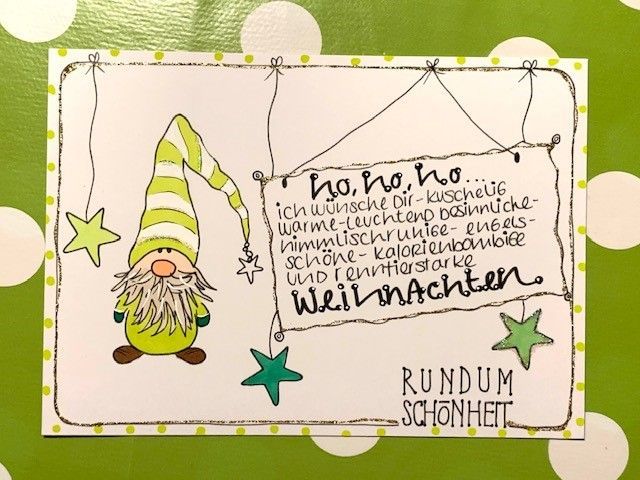 Ho, Ho, Ho...
ich wünsche Dir - kuschelig
warme - leuchtend besinnliche -
himmlischruhige - engels-
schöne - kalorienbombige
und renntierstarke
Weihnachten.
RUNDUM
SCHÖNHEIT